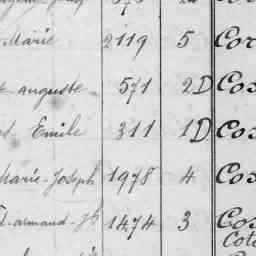 Marie 2119 5 Cor
auguste 571 2D Cos
Emile 311 1D Cos
Marie-Joseph 1978 4 Cos
armand-Jh 1474 3 Cos
Cot